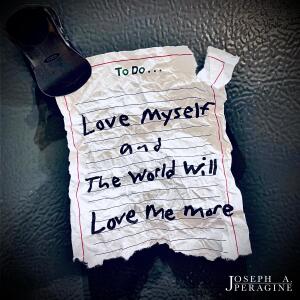 To Do...
Love Myself
and
The World Will
Love Me More
Joseph A.
Peragine